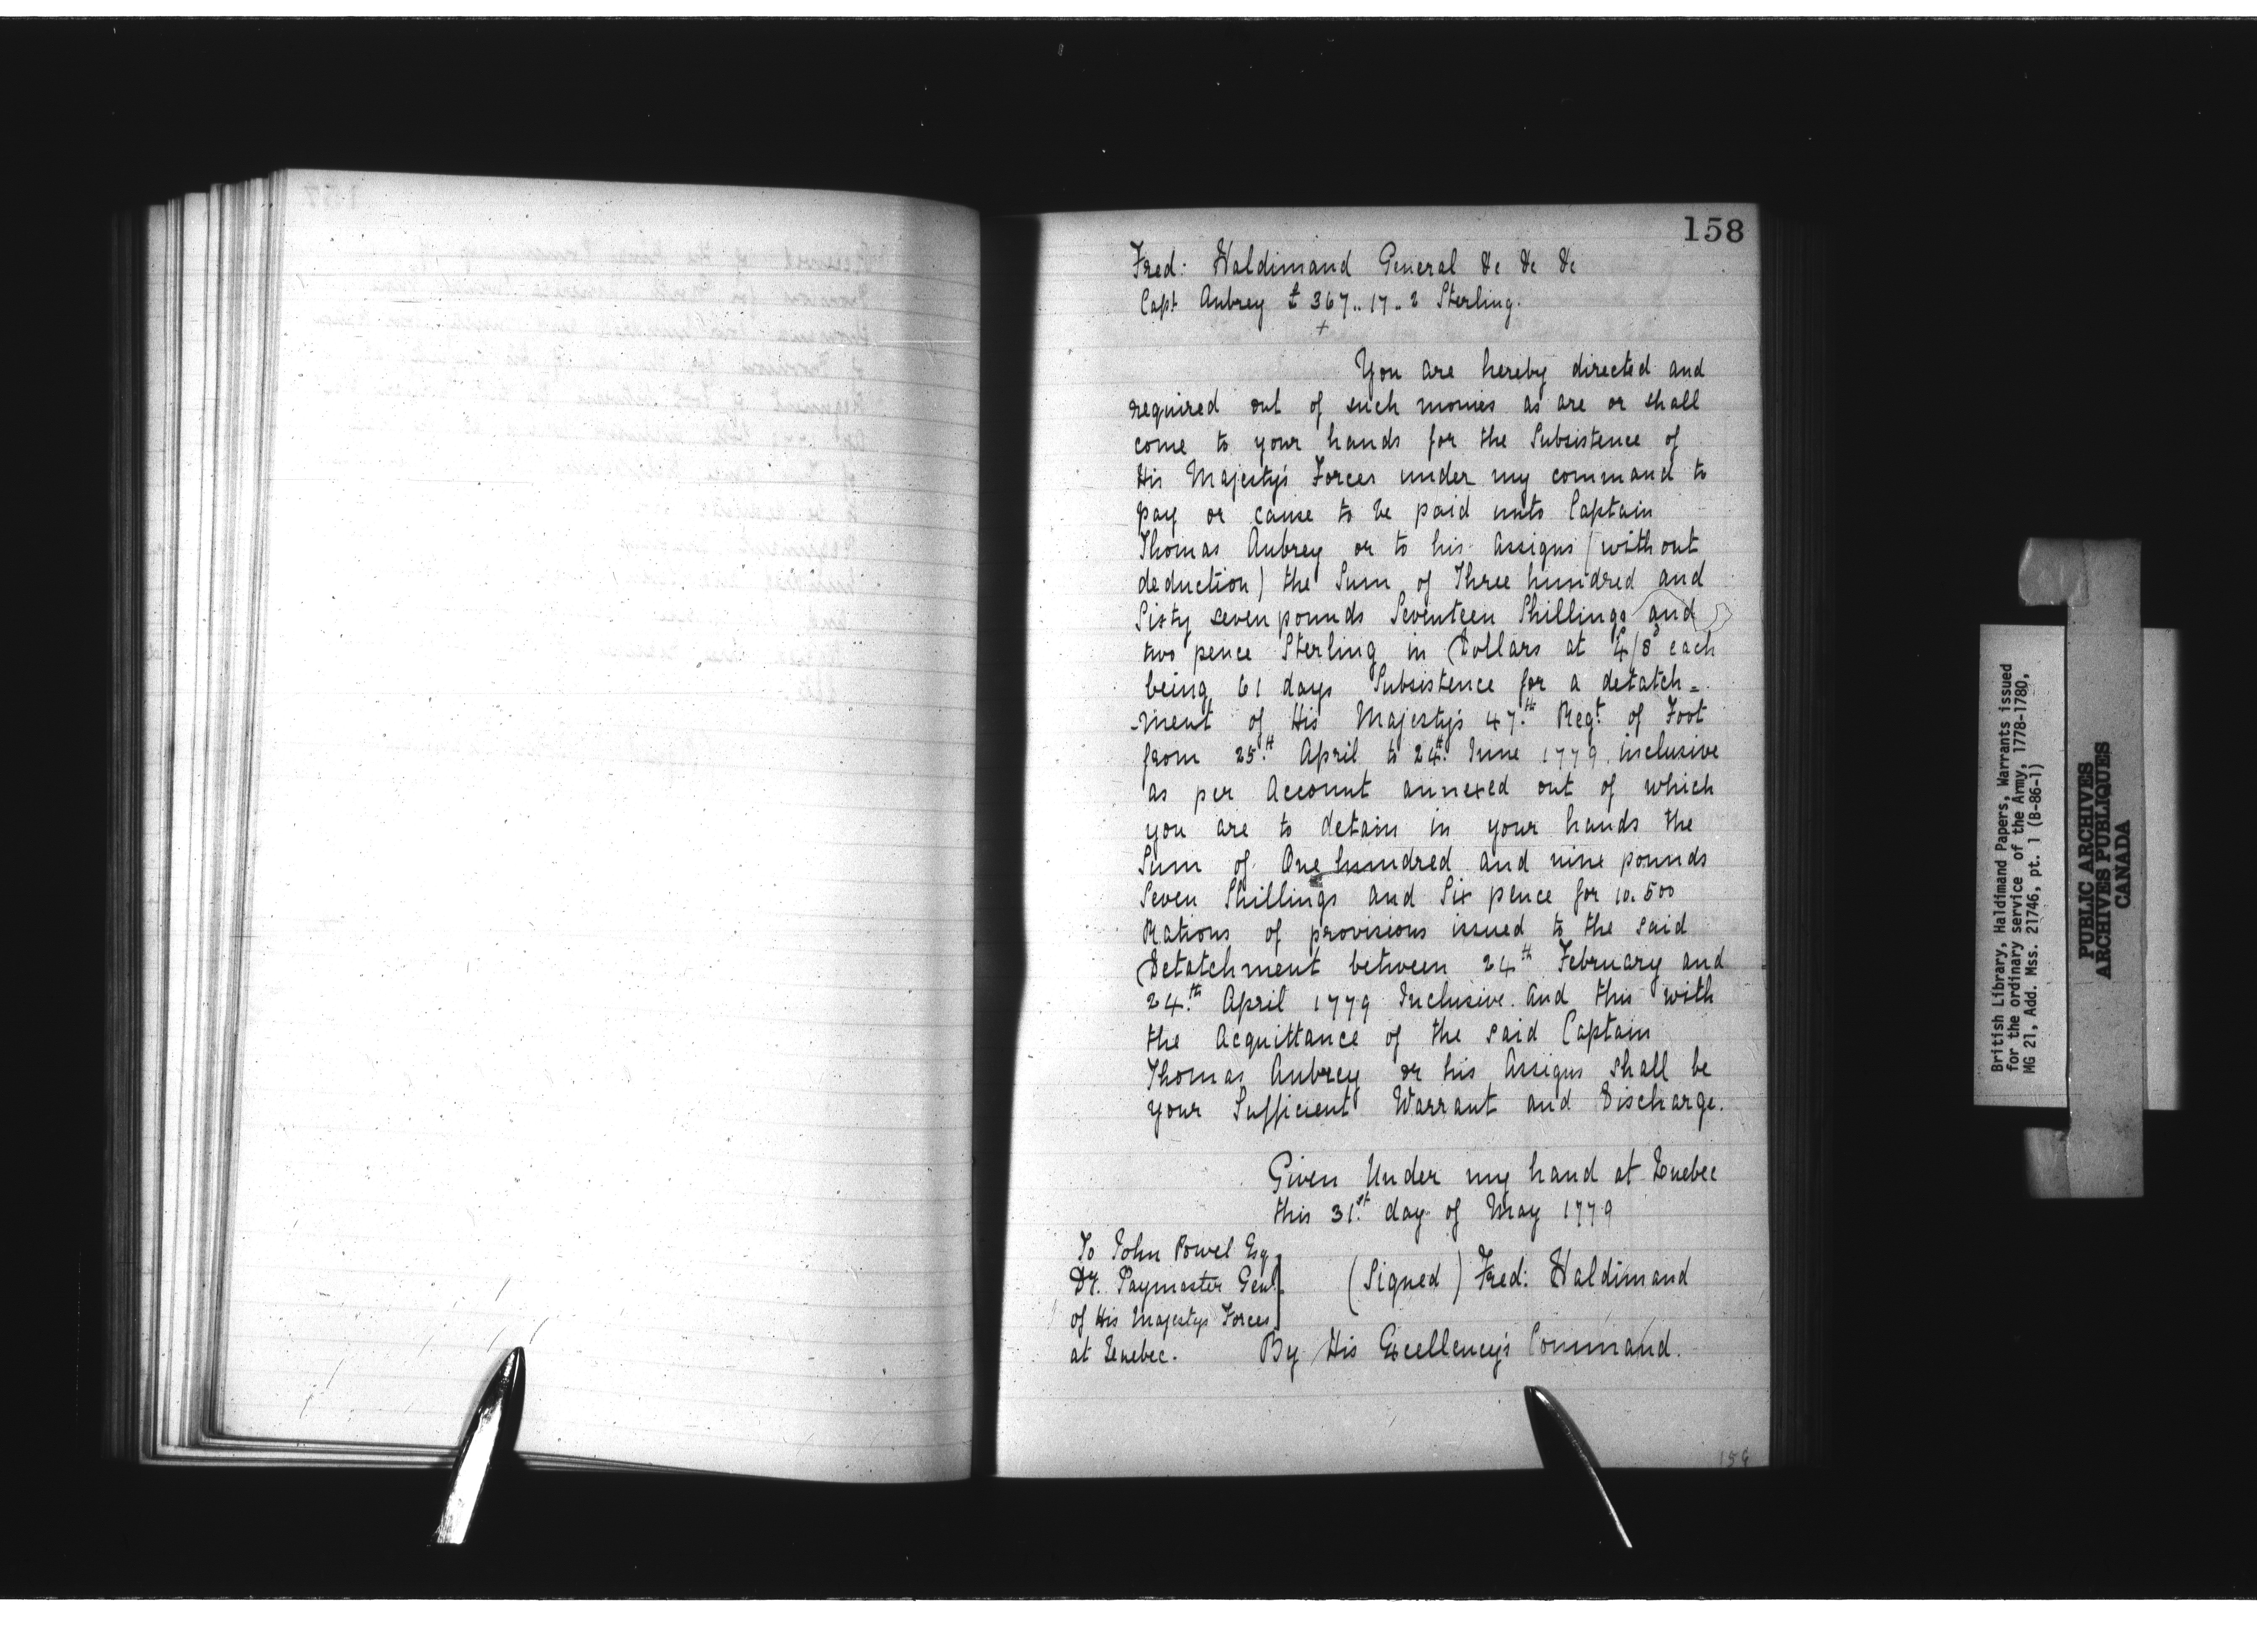 158
Fred: Haldimand General &c &c &c
Capt Aubrey £ 367.. 17.. 2 Sterling.
+
You are hereby directed and
required out of such monies as are or shall
come to your hands for the Subsistence of
His Majesty's Forces under my command to
pay or cause to be paid unto Captain
Thomas Aubrey or to his Assigns (without
deduction) the Sum of Three hundred and
Sixty seven pounds Seventeen Shillings and
two pence Sterling in Dollars at 4/8 each
being 61 days Subsistence for a detatch=
-ment of His Majesty's 47.th Regt. of Foot
from 25.th April to 24.th June 1779 inclusive
as per Account annexed out of which
you are to detain in your hands the
Sum of One hundred and nine pounds
Seven Shillings and Six pence for 10.500
Rations of provisions issued to the said
Detatchment between 24th February and
24.th April 1779 Inclusive. And this with
the Acquittance of the said Captain
Thomas Aubrey or his Assigns shall be
your Sufficient Warrant and Discharge.
Given Under my hand at Quebec
this 31.st day of May 1779
To John Powel Esq
Dy. Paymaster Genl.
of His Majestys Forces
at Quebec.
(Signed) Fred: Haldimand
By His Excellency's Command.
159
British Library, Haldimand Papers, Warrants issued
for the ordinary service of the Army, 1778-1780,
MG 21, Add. Mss. 21746, pt. 1 (B-86-1)
PUBLIC ARCHIVES
ARCHIVES PUBLIQUES
CANADA